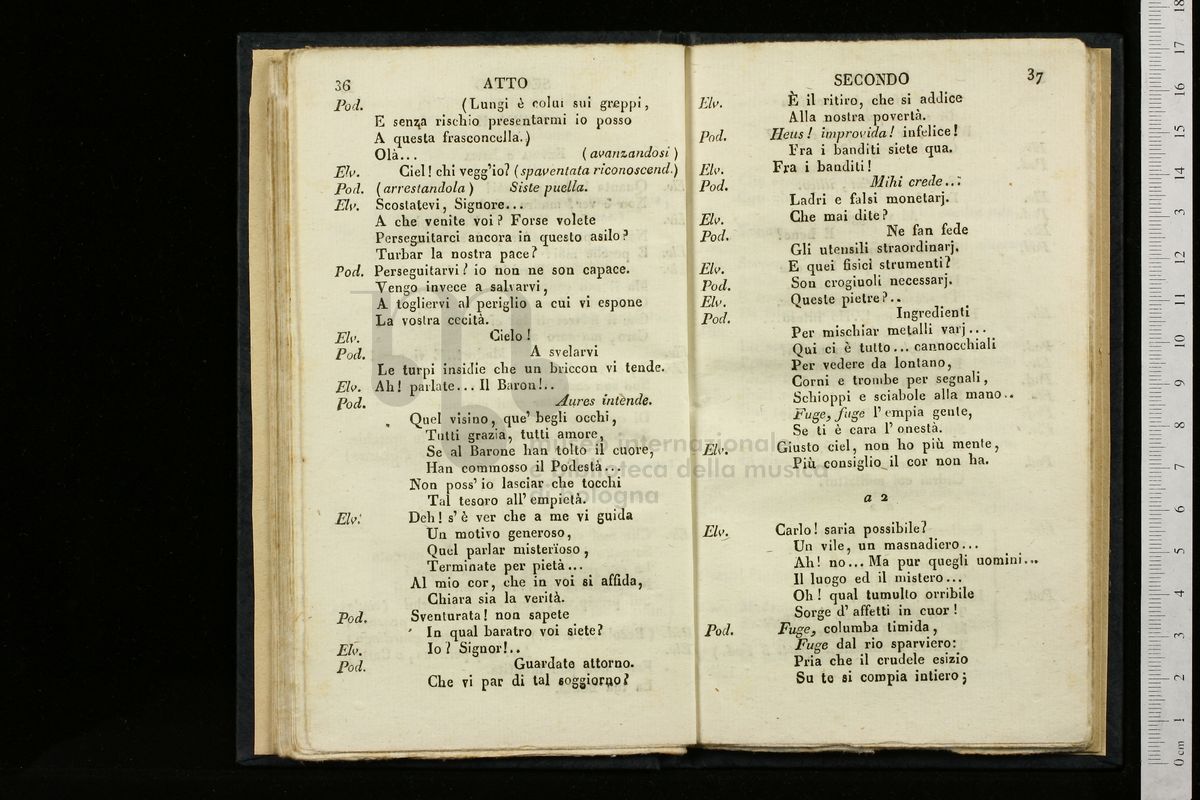 36 ATTO
Pod. (Lungi è colui sui greppi,
E senza rischio presentarmi io posso
A questa frasconcella.)
Olà... (avanzandosi)
Elv. Ciel! chi vegg'io? (spaventata riconoscend.)
Pod. (arrestandola) Siste puella.
Elv. Scostatevi, Signore...
A che venite voi? Forse volete
Perseguitarci ancora in questo asilo?
Turbar la nostra pace?
Pod. Perseguitarvi? io non ne son capace.
Vengo invece a salvarvi,
A togliervi al periglio a cui vi espone
La vostra cecità.
Elv. Cielo!
Pod. A svelarvi
Le turpi insidie che un briccon vi tende.
Elv. Ah! parlate... Il Baron!..
Pod. Aures intende.
Quel visino, que' begli occhi,
Tutti grazia, tutti amore,
Se al Barone han tolto il cuore,
Han commosso il Podestà...
Non poss' io lasciar che tocchi
Tal tesoro all' empietà.
Elv. Deh! s' è ver che a me vi guida
Un motivo generoso,
Quel parlar misterïoso,
Terminate per pietà...
Al mio cor, che in voi si affida,
Chiara sia la verità.
Pod. Sventurata! non sapete
In qual baratro voi siete?
Elv. Io? Signor!..
Pod. Guardate attorno.
Che vi par di tal soggiorno?
SECONDO 37
Elv. È il ritiro, che si addice
Alla nostra povertà.
Pod. Heus! improvida! infelice!
Fra i banditi siete qua.
Elv. Fra i banditi!
Pod. Mihi crede...
Ladri e falsi monetarj.
Elv. Che mai dite?
Pod. Ne fan fede
Gli utensili straordinarj.
Elv. E quei fisici strumenti?
Pod. Son crogiuoli necessarj.
Elv. Queste pietre?..
Pod. Ingredienti
Per mischiar metalli varj...
Qui ci è tutto... cannocchiali
Per vedere da lontano,
Corni e trombe per segnali,
Schioppi e sciabole alla mano..
Fuge, fuge l' empia gente,
Se ti è cara l' onestà.
Elv. Giusto ciel, non ho più mente,
Più consiglio il cor non ha.
a 2
Elv. Carlo! saria possibile?
Un vile, un masnadiero...
Ah! no... Ma pur quegli uomini...
Il luogo ed il mistero...
Oh! qual tumulto orribile
Sorge d' affetti in cuor!
Pod. Fuge, columba timida,
Fuge dal rio sparviero:
Pria che il crudele esizio
Su te si compia intiero;
museo internazionale
e biblioteca della musica
di bologna
0 cm 1 2 3 4 5 6 7 8 9 10 11 12 13 14 15 16 17 18